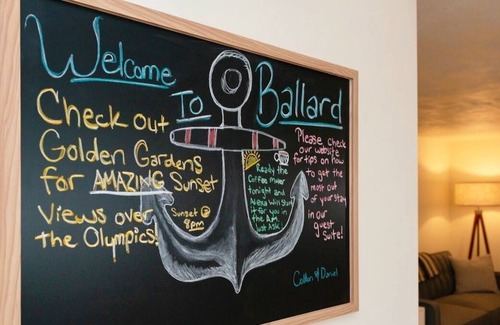 Welcome
To
Ballard
Check out
Golden Gardens
for AMAZING Sunset
Views over
the Olympics!
Sunset @
8pm
Ready the
Coffee maker
tonight and
Alexa Will Start
it for you in
the A.M.
Just Ask!
Please check
our website
for tips on how
to get the
most out
of your stay
in our
guest
suite!
& Daniel